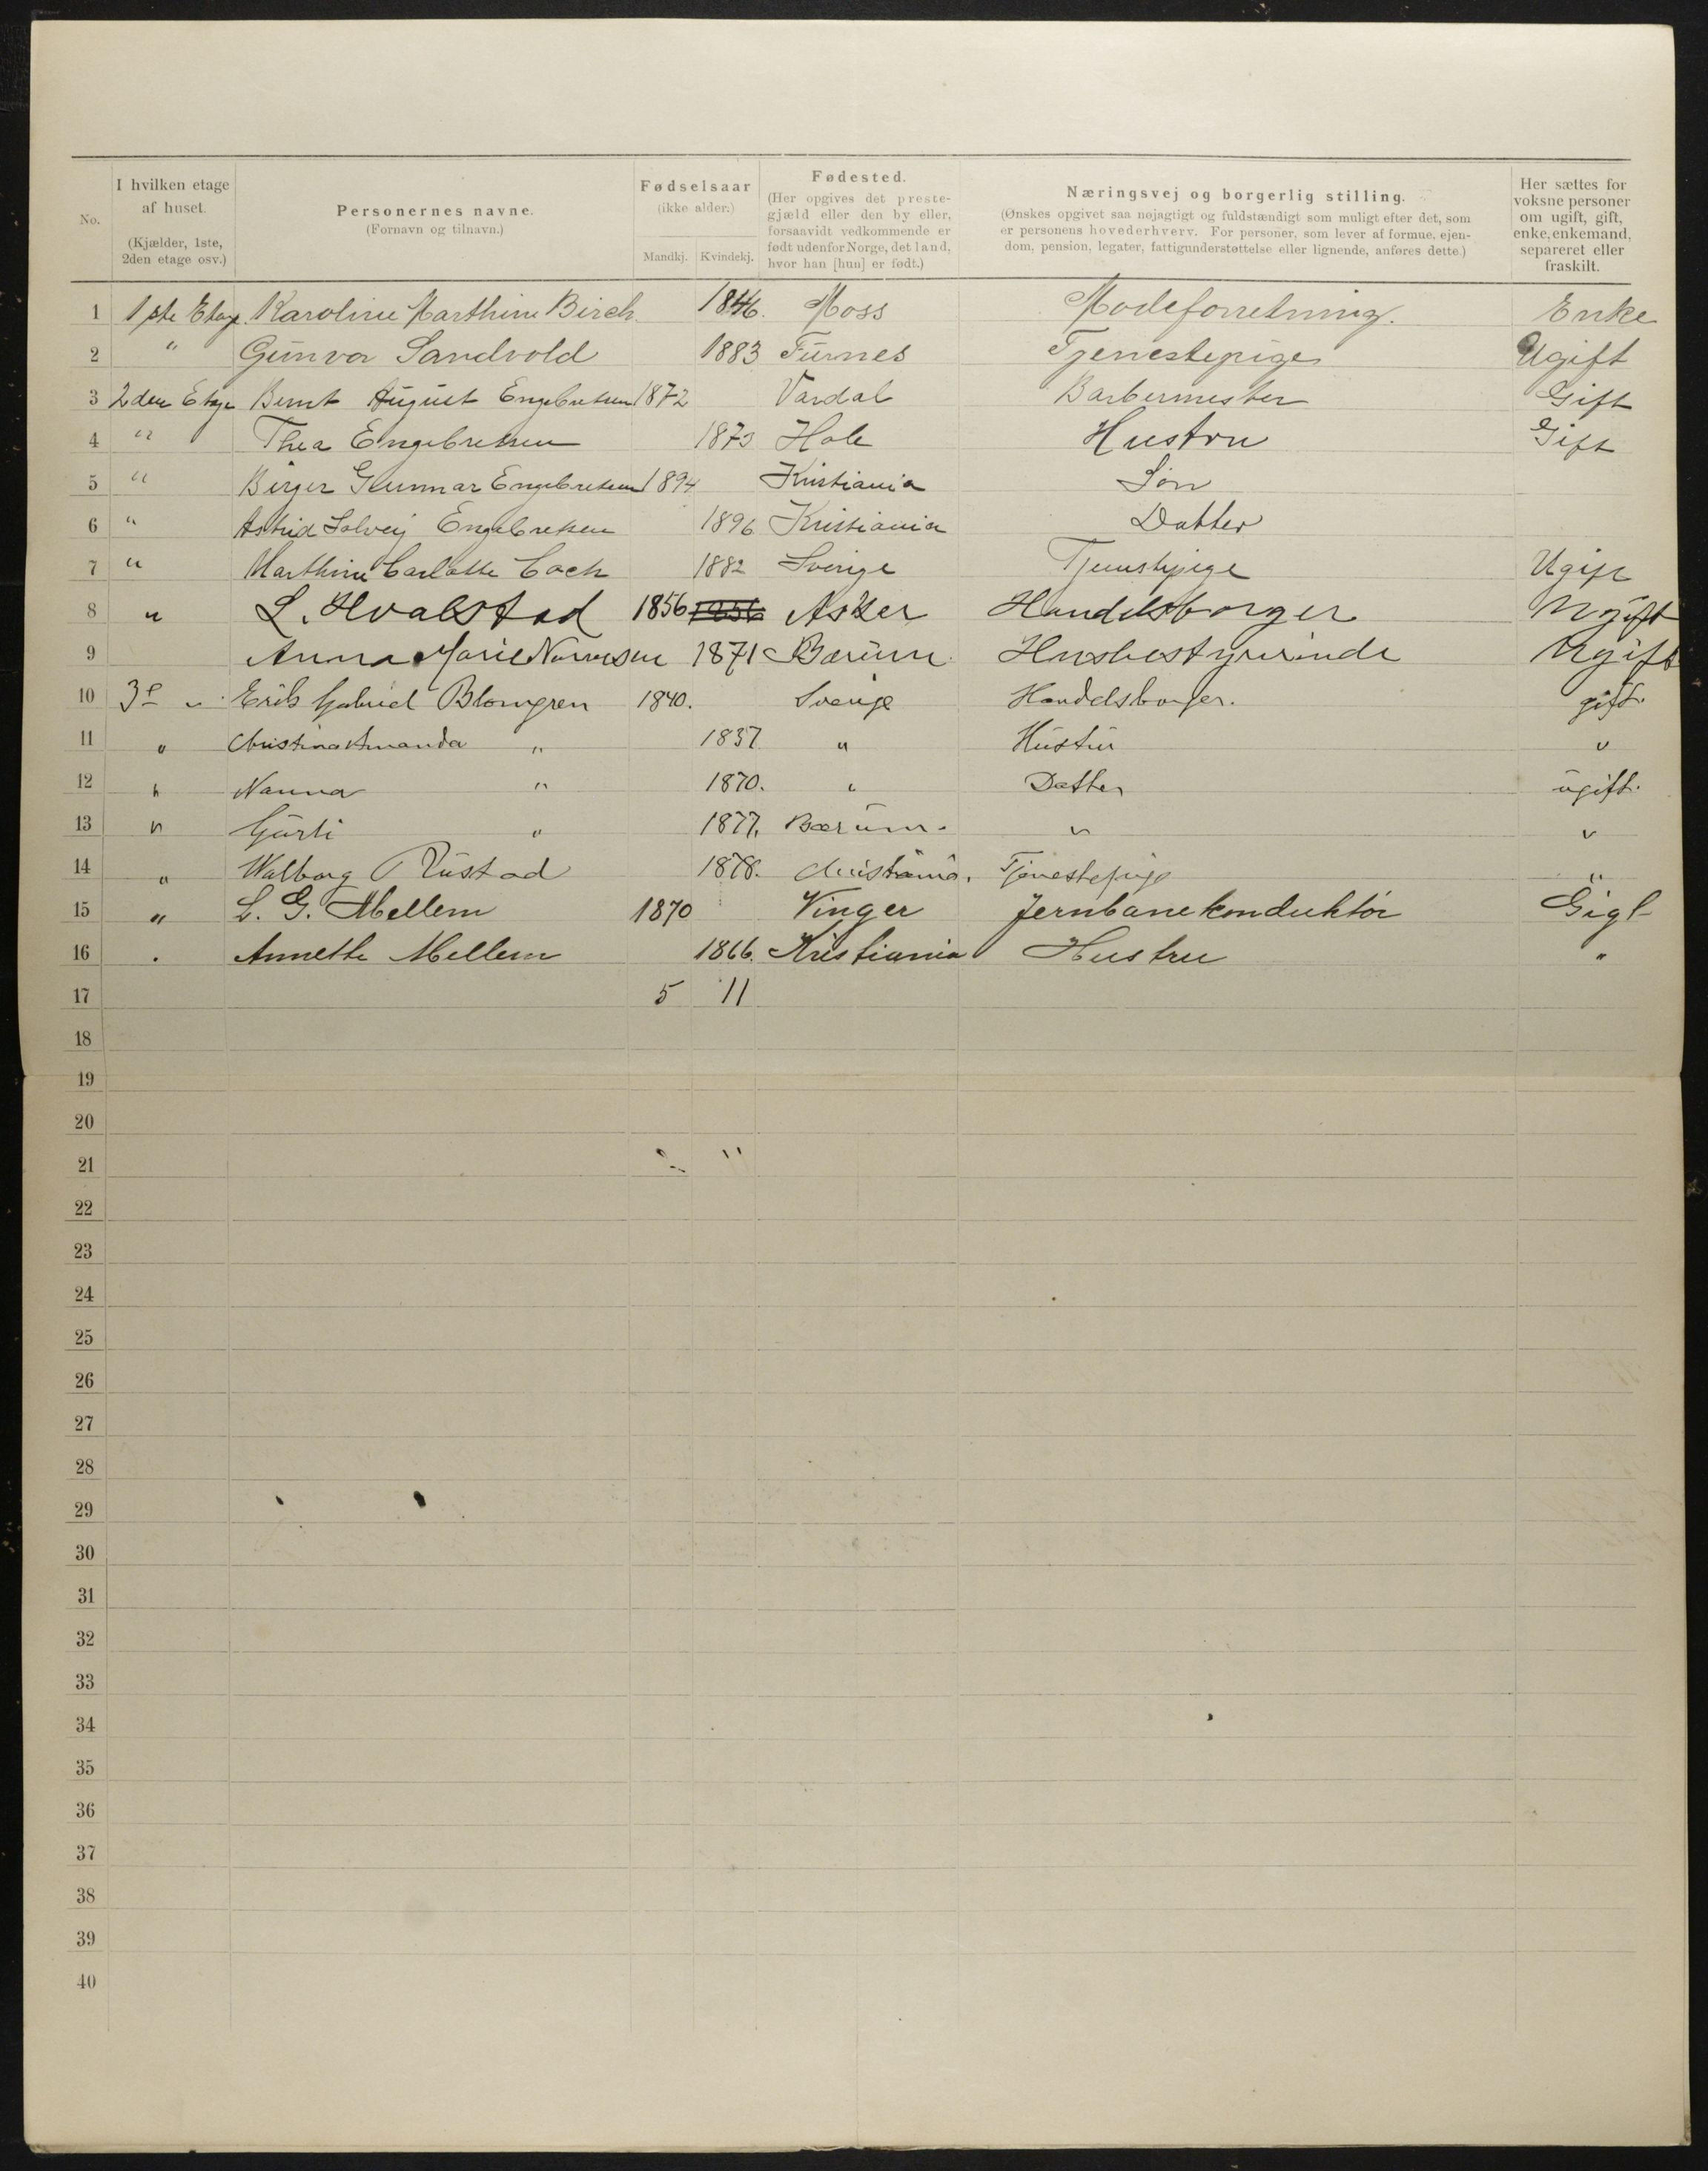 No.
I hvilken etage af huset. (Kjælder, 1ste, 2den etage osv.)
Personernes navne. (Fornavn og tilnavn.)
Fødselsaar (ikke alder.) Mandkj. Kvindekj.
Fødested. (Her opgives det prestegjæld eller den by eller, forsaavidt vedkommende er født udenfor Norge, det land, hvor han [hun] er født.)
Næringsvej og borgerlig stilling. (Ønskes opgivet saa nøjagtigt og fuldstændigt som muligt efter det, som er personens hovederhverv. For personer, som lever af formue, ejendom, pension, legater, fattigunderstøttelse eller lignende, anføres dette.)
Her sættes for voksne personer om ugift, gift, enke, enkemand, separeret eller fraskilt.
1 1ste Etage. Karoline Marthine Birch. 1846. Moss Modeforretning. Enke
2 " Gunvor Sandvold 1883 Furnes Tjenestepige Ugift
3 2den Etage Bernt August Engebretsen 1872 Vardal Barbermester Gift
4 " Thea Engebretsen 1873 Hole Hustru Gift
5 " Birger Gunnar Engebretsen 1894 Kristiania Søn
6 " Astrid Solveig Engebretsen 1896 Kristiania Datter
7 " Marthine Carlotte Coch 1882 Sverige Tjenestepige Ugift
8 " L. Hvalstad 1856 1856 Asker Handelsborger Ugift
9 Anna Marie 1871 Bærum Husbestyrerinde Ugift
10 3e " Erik Gabriel Blomgren 1840. Sverige Handelsborger. gift.
11 " Christina Amanda " 1837 " Hustru "
12 " Nanna " 1870. " Datter ugift.
13 " Gurli " 1877. Bærum. " "
14 " Walborg Rustad 1878. Christiania. Tjenestepige "
15 " L. G. Mellem 1870 Vinger Jernbanekonduktør Gigt
16 . Annette Mellem 1866. Kristiania Hustru "
17 5 11
18
19
20
21
22
23
24
25
26
27
28
29
30
31
32
33
34
35
36
37
38
39
40